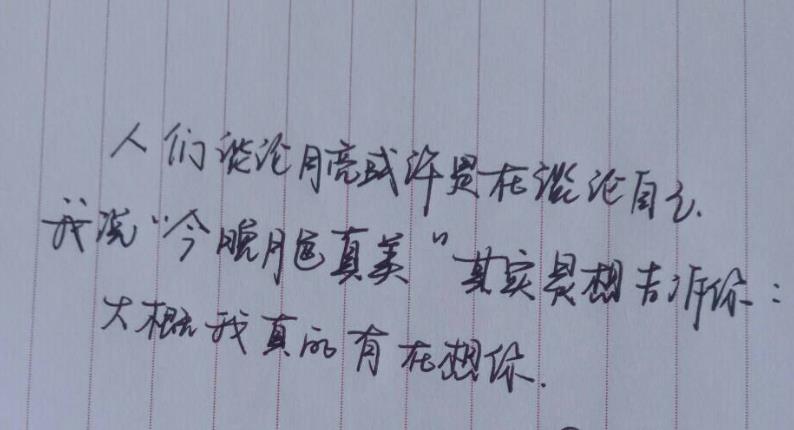 人们谈论月亮或许是在谈论自己.
我说“今晚月色真美”其实是想告诉你:
大概我真的有在想你.